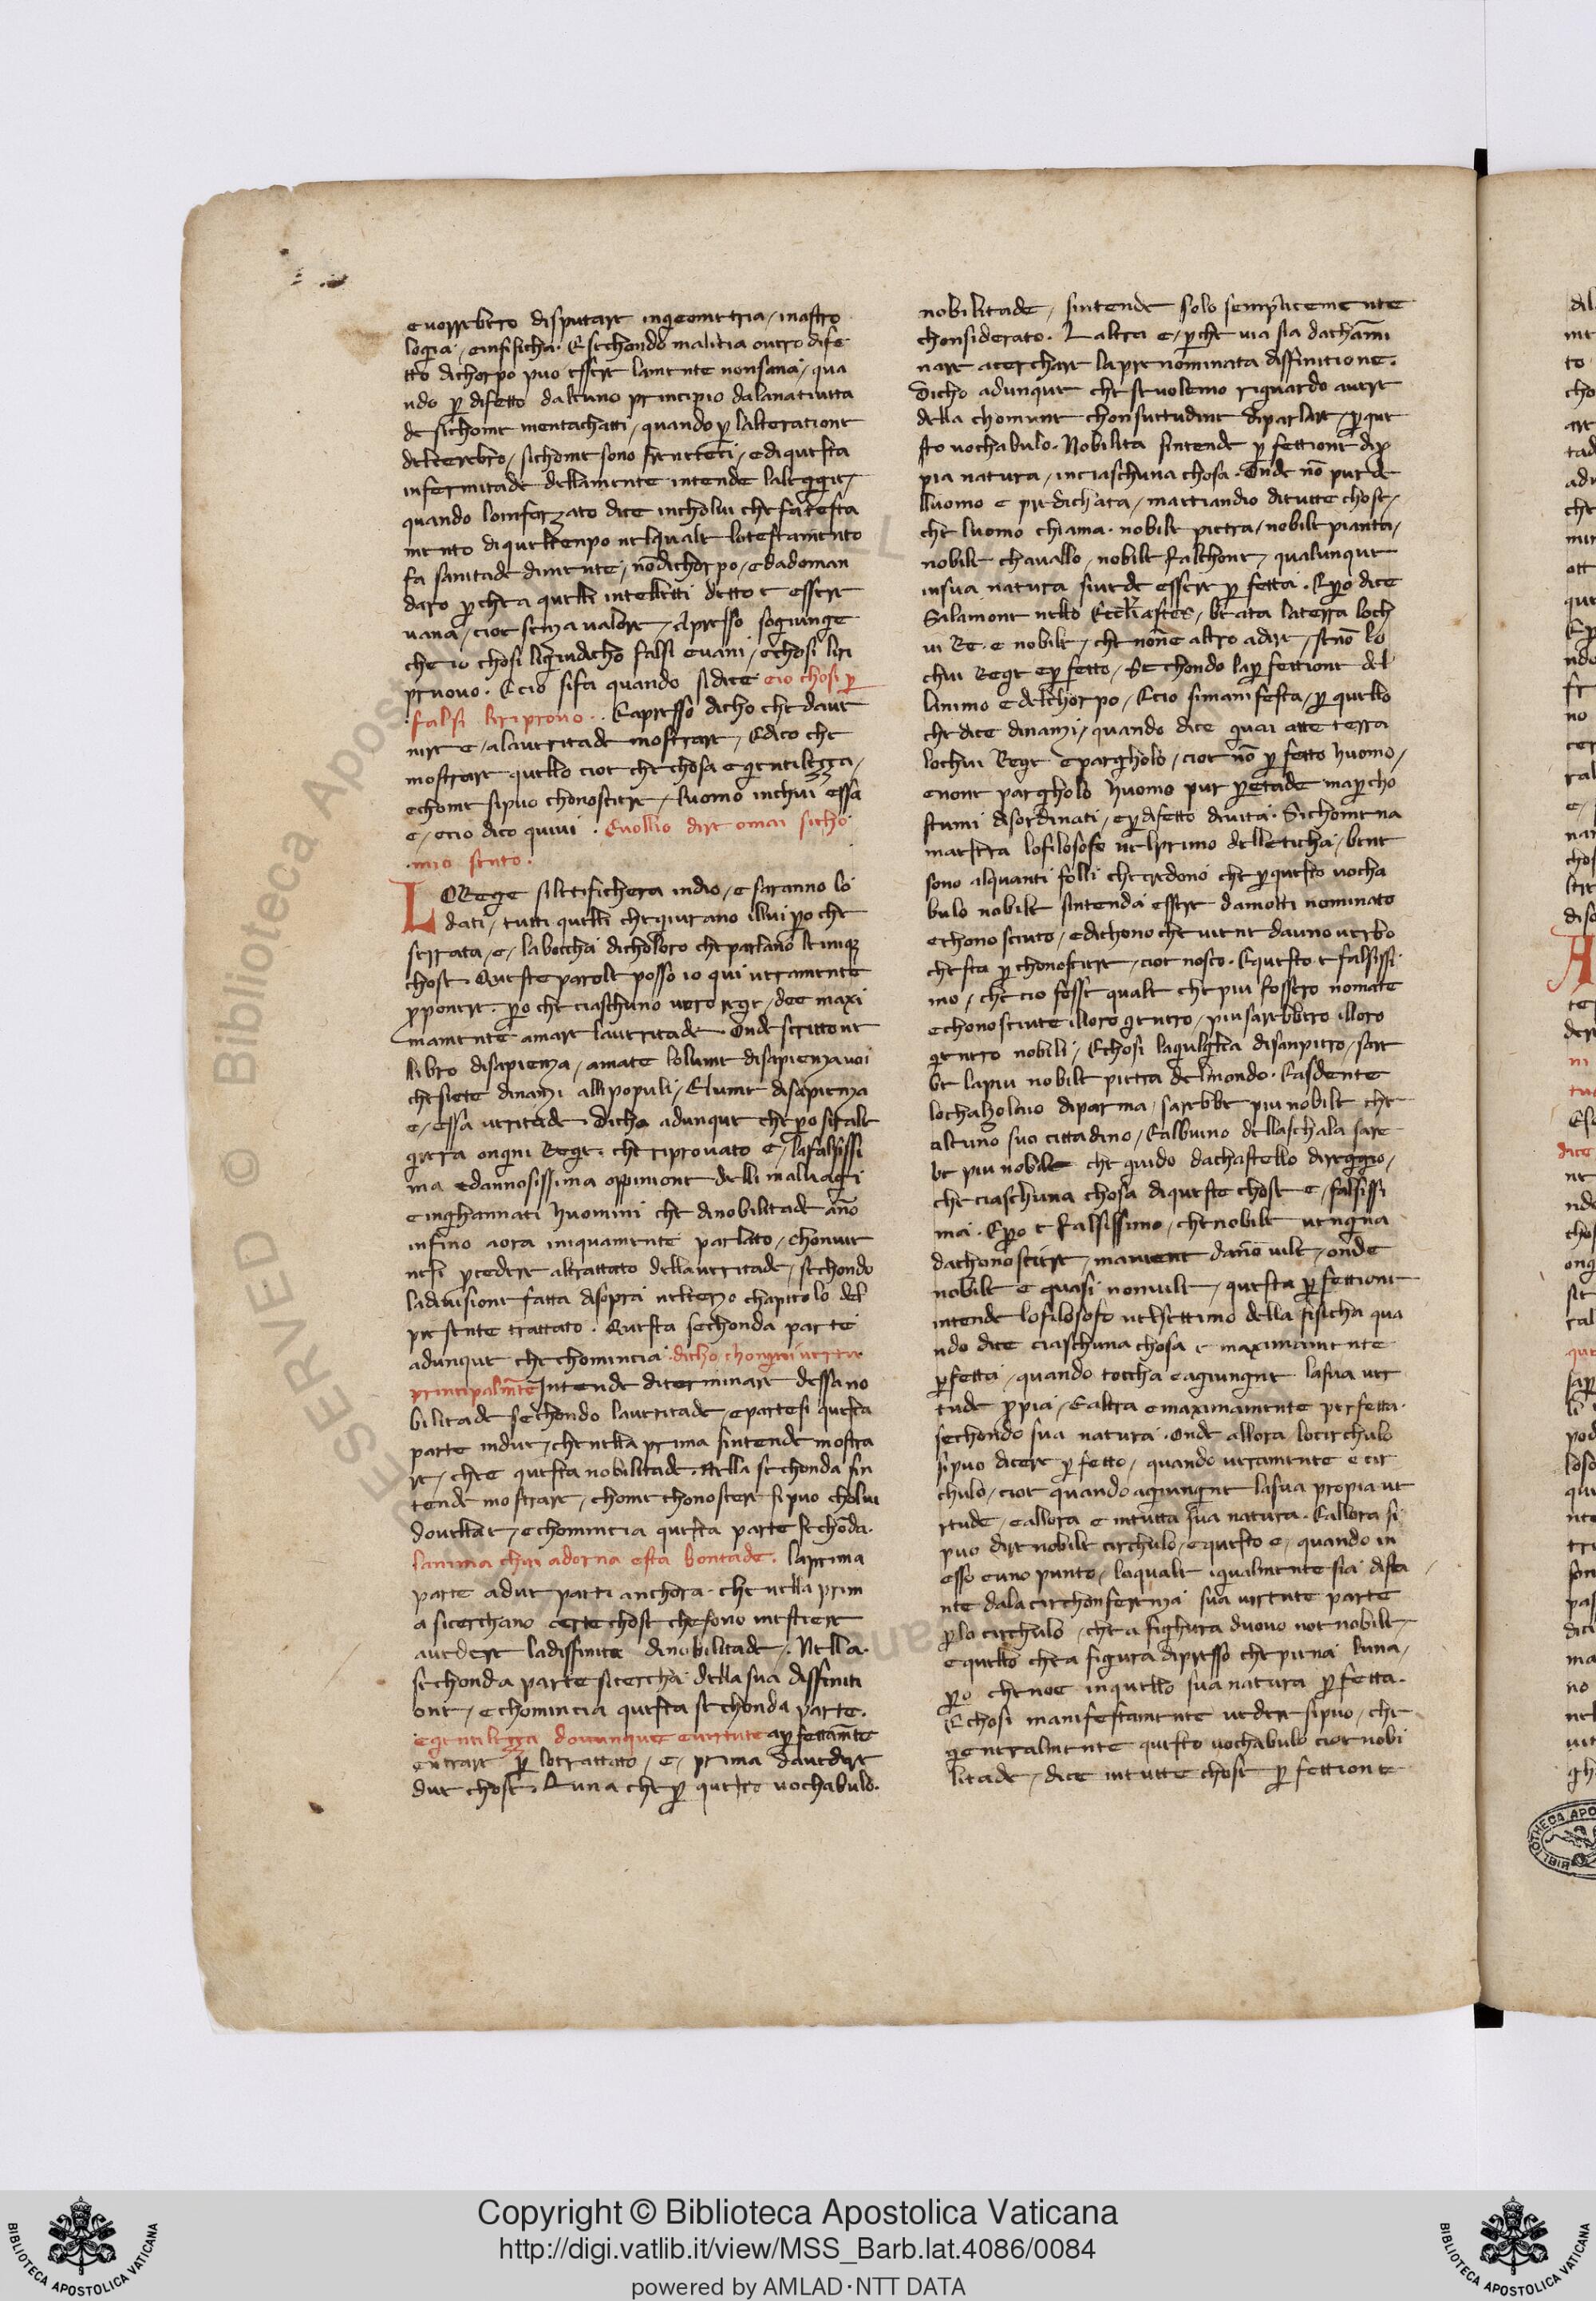 e vorrebbero disputare ingeometria / inastro
logia / einfisicha. E sechondo malitia outro dife
tto dichorpo puo essere lamente nonsana / qua
ndo p̄ difetto dalcuno principio dalanativita
de sichome mentachatti / quando p̄ lalteratione
delcerebro / sichome sono frenetici / ediquesta
infermitade dellamente intende lalegge /
quando lominforzato dice incholui che fatesta
mento diqueltenpo nelquale lotestamento
fa sanitade dimente / nōdichorpo / edadoman
daro p̄che a quelli intelletti detto e essere
vana / cioe senza valore / Apresso sogiunge
che io chosi
pruovo. Ecio sifa quando sidice eio chosi p̄
falsi liriprovo. Eapresso dicho che dave
nire e / alaveritade mostrare / Edico che
mostrare quello cioe che chosa e gentilezza /
echome sipuo chonoscere / luomo inchui essa
e / ecio dico quivi. Evollio dire omai sicho
mio sento.
LO Rege siletifichera indio / e saranno lo
dati / tutti quelli chegiurano illui po che
serrata / e / laboccha dicholoro cheparlano leinique
chose. Queste parole posso io qui veramente
p̄ponere. p̄o che ciaschuno vero rege / dee maxi
mamente amare laveritade. Onde scrittone
llibro disapienza / amate lolume disapienza voi
chesiete dinanzi alli populi / Elume disapienza
e / essa veritade. Dicho adunque che p̄o sirale
grera ongni Rege. che riprovato e / lafalsissi
ma edannosissima oppinione delli malvagi
e inghannati huomini che dinobilitade āno
infino aora iniquamente parlato / chonvie
nesi p̄cedere altrattato dellaveritade / sechondo
ladivisione fatta disopra nelterzo chapitolo del
presente trattato. Questa sechonda parte
adunque che chomincia dicho chongni vertu
principalmēte Intende diterminare dessa no
bilitade sechondo laveritade / epartesi questa
parte indue / che nella prima sintende mostra
re / che e questa nobilitade. Nella sechonda sin
tende mostrare / chome chonoscere si puo cholui
dovella e / echomincia questa parte sechōda.
lanima chui adorna esta bontade. laprima
parte adue parti anchora. che nella prim
a sicerchano certe chose che sono mestiere
avedere ladiffinitione dinobilitade /. Nella
sechonda parte sicercha della sua diffiniti
one / e chomincia questa sechonda parte.
egentilezza dovunque evertute ap̄fettamēte
entrare p̄ lotrattatto / e / prima davedere
due chose. Luna che p̄ questo vochabulo.
nobilitade / sintende solo semplicemente
chonsiderato. Laltra e / p̄che via sia dachāmi
nare acerchare laprenominata diffinitione.
Dicho adunque che se volemo riguardo avere
della chomune chonsuetudine diparlare / p̄ que
sto vochabulo. Nobilita sintende p̄fettione dip̄
pia natura / inciaschuna chosa. Onde nō pur de
lluomo e predichata / maetiandio ditutte chose /
che luomo chiama. nobile pietra / nobile pianta /
nobile chavallo / nobile falchone / qualunque
insua natura sivede essere p̄fetta. E p̄o dice
Salamone nello Ecclesiastes / beata laterra loch
ui Re. e nobile / che none altro adire / senō lo
chui Rege e p̄fetto / Sechondo lap̄fettione del
lanimo e delchorpo / Ecio simanifesta / p̄ quello
che dice dinanzi / quando dice guai atte terra
lochui Rege e pargholo / cioe nō p̄fetto huomo /
enone pargholo huomo pur p̄etade map̄cho
stumi disordinati / e p̄ difetto divita. Sichome na
maestra lofilosofo nelprimo delleticha / bene
sono alquanti folli checredono che p̄questo vocha
bulo nobile sintenda essere damolti nominato
e chonosciuto / edichono che viene dauno verbo
chesta p̄ chonoscere / cioe nosco. E questo e falsissi
mo / che cio fosse quale che piu fossero nomate
echonosciute illoro genero / piu sarebbero illoro
genero nobili / Echosi laguglia disanpiero / sare
be lapiu nobile pietra delmondo. Easdente
lochalzolaio diparma / sarebbe piu nobile che
alcuno suo cittadino / Ealbuino dellaschala sare
be piu nobile che guido dachastello direggio /
che ciaschuna chosa diqueste chose e / falsissi
ma. E p̄o e falsissimo / che nobile vengna
dachonoscere / maviene danō vile / onde
nobile e quasi nonvile / questa p̄fettione
intende lofilosofo nelsettimo della fisicha qua
ndo dice ciaschuna chosa e maximamente
p̄fetta / quando toccha eagiungne lasua ver
tude p̄pia / Ealtra emaximamente perfetta.
sechondo sua natura. Onde allora / locirchulo
sipuo dicere p̄fetto / quando veramente e cir
chulo / cioe quando agiungne lasua propia ve
rtude / eallora e intutta sua natura. Eallora si
puo dire nobile circhulo / equesto e / quando in
esso euno punto / loquale igualmente sia dista
nte dala circhonferenza sua vertute parte
p̄lo circhulo / che a fighura duovo noe nobile /
equello chea figura dipresso chepiena luna /
p̄o che noe inquello sua natura p̄fetta.
Echosi manifestamente vedersipuo / che
generalmente questo vochabulo cioe nobi
litade / dice intutte chose p̄fettione
Copyright © Biblioteca Apostolica Vaticana
http://digi.vatlib.it/view/MSS_Barb.lat.4086/0084
powered by AMLAD·NTT DATA
BIBLIOTECA APOSTOLICA VATICANA
BIBLIOTECA APOSTOLICA VATICANA